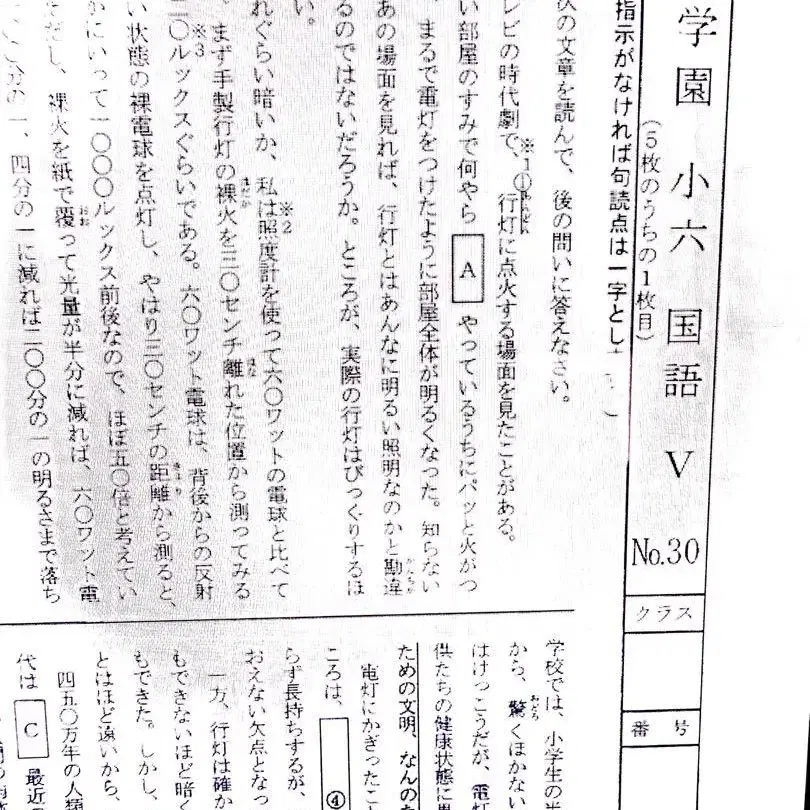 学園 小六 国語 Ⅴ No.30
クラス
番号
(5枚のうちの1枚目)
指示がなければ句読点は一字とし
次の文章を読んで、後の問いに答えなさい。
レビの時代劇で、※1①行灯に点火する場面を見たことがある。
い部屋のすみで何やら A やっているうちにパッと火がつ
、まるで電灯をつけたように部屋全体が明るくなった。知らない
あの場面を見れば、行灯とはあんなに明るい照明なのかと勘違
るのではないだろうか。ところが、実際の行灯はびっくりするほ
い。
れぐらい暗いか、私は※2照度計を使って六〇ワットの電球と比べて
。まず手製行灯の裸火を三〇センチ離れた位置から測ってみる
二〇※3ルックスぐらいである。六〇ワット電球は、背後からの反射
い状態の裸電球を点灯し、やはり三〇センチの距離から測ると、
かにいって一〇〇〇ルックス前後なので、ほぼ五〇倍と考えてい
ただし、裸火を紙で覆って光量が半分に減れば、六〇ワット電
分の一、四分の一に減れば二〇〇分の一の明るさまで落ち
学校では、小学生の
から、驚くほかない
はけっこうだが、電灯
供たちの健康状態に
ための文明、なんの
電灯にかぎったこ
ころは、 ④
らず長持ちするが、
おえない欠点となっ
一方、行灯は確か
もできないほど暗く
もできた。しかし、
とはほど遠いから、
四五〇万年の人類
代は C 最近